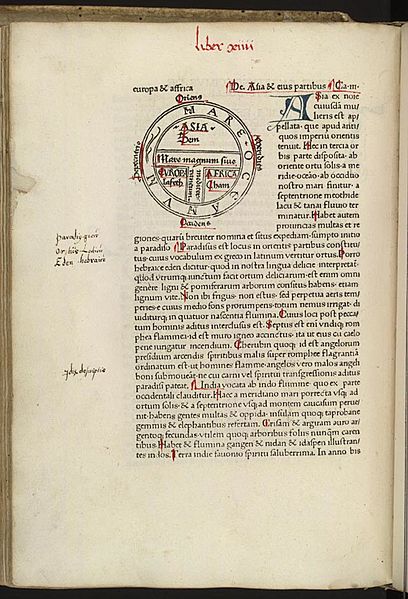 liber xiiii
europa & affrica
De. Asia & eius partibus Ca. iii.
Oriens
MARE OCEANUM
ASIA
Sem
Mare magnum siue
EVROPA
Iafeth
mediterraneum
AFRICA
Cham
Septentrio
Meridies
Occidens
Asia ex noie
cuiusdā mu
lieris est ap
pellata. que apud antiquos
imperiū orientis
tenuit. Hec in tercia or
bis parte disposita. ab
oriente ortu solis. a me
ridie oceāo. ab occiduo
nostro mari finitur. a
septentrione meothide
lacu & tanai fluuio ter
minatur. Habet autem
prouincias multas et re
giones. quarū breuiter nomina et situs expediam. sumpto initio
a paradiso Paradisus est locus in orientis partibus constitu
tus. cuius vocabulum ex greco in latinum vertitur ortus. Porro
hebraice eden dicitur. quod in nostra lingua delicie interpretat
quod vtrumque iunctum facit ortum deliciarum. est enim omni
genere ligni & pomiferarum arborum consitus. habens etiam
lignum vite. Non ibi frigus. non estus. sed perpetua aeris tem
peries. e cuius medio fons prorumpens. totum nemus irrigat. di
uiditurque in quatuor nascentia flumina. Cuius loci post pecca
tum hominis aditus interclusus est. Septus est eni vndique rom
phea flammea. id est muro igneo accinctus. ita ut eius cū caelo
pene iungatur incendium. Cherubin quoque id est angelorum
presidium arcendis spiritibus malis super romphee flagrantiā
ordinatum est. ut homines flamme. angelos vero malos angeli
boni submoueāt. ne cui carni vel spiritui transgressionis aditus
paradisi pateat. India vocata ab indo flumine. quo ex parte
occidentali clauditur. Haec a meridiano mari porrecta vsque ad
ortum solis. & a septentrione vsque ad montem caucasum perue
nit. habens gentes multas & oppida. insulam quoque taprobane
gemmis & elephantibus refertam. Crisam & argiram auro ar
gentoque fecundas. vtilem quoque arboribus foliis nunquam caren
tibus. Habet & flumina gangen & nidan & idaspen illustran
tes indos. Terra indie fauonio spiritu saluberrima. In anno bis
Eden hebraice